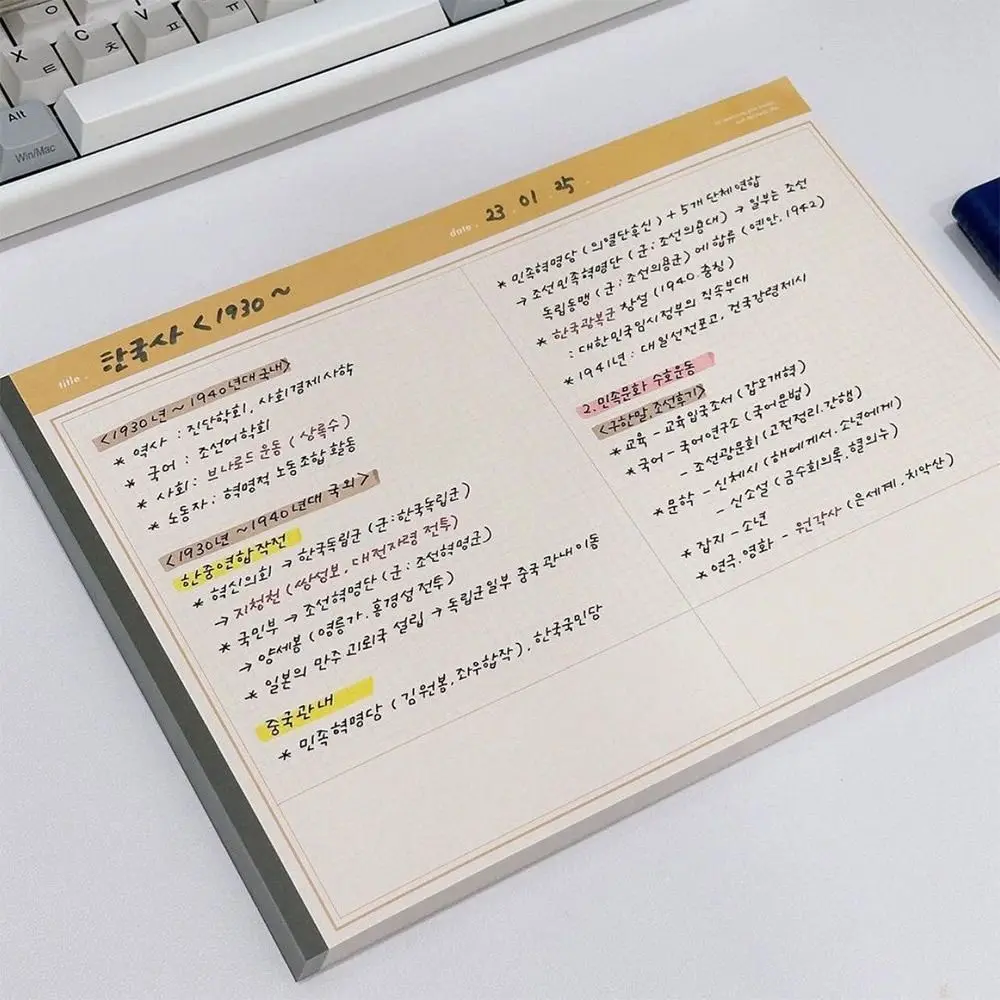 X ㅌ
C ㅊ
V ㅍ
ㅠ
Alt
Win/Mac
title.
한국사 <1930 ~
date.
23 01 25
<1930년 ~ 1940년대 국내>
* 역사 : 진단학회, 사회경제사학
* 국어 : 조선어학회
* 사회 : 브나로드 운동 (상록수)
* 노동자 : 혁명적 노동조합 활동
<1930년 ~ 1940년대 국외>
한중연합작전
* 혁신의회 → 한국독립군 (군:한국독립군)
→ 지청천 (쌍성보, 대전자령 전투)
* 국민부 → 조선혁명단 (군 : 조선혁명군)
→ 양세봉 (영릉가. 흥경성 전투)
* 일본의 만주 괴뢰국 설립 → 독립군일부 중국 관내 이동
중국관내
* 민족혁명당 (김원봉, 좌우합작), 한국국민당
* 민족혁명당 (의열단후신) + 5개 단체 연합
→ 조선민족혁명단 (군 : 조선의용대) → 일부는 조선
독립동맹 (군 : 조선의용군) 에 합류 (옌안, 1942)
* 한국광복군 창설 (1940. 충칭)
: 대한민국임시정부의 직속부대
* 1941년 : 대일선전포고, 건국강령제시
2. 민족문화 수호운동
<구한말, 조선후기>
* 교육 - 교육입국조서 (갑오개혁)
* 국어 - 국어연구소 (국어문법)
- 조선광문회 (고전정리.간행)
* 문학 - 신체시 (해에게서.소년에게)
- 신소설 (금수회의록, 혈의누)
* 잡지 - 소년
* 연극.영화 - 원각사 (은세계. 치악산)